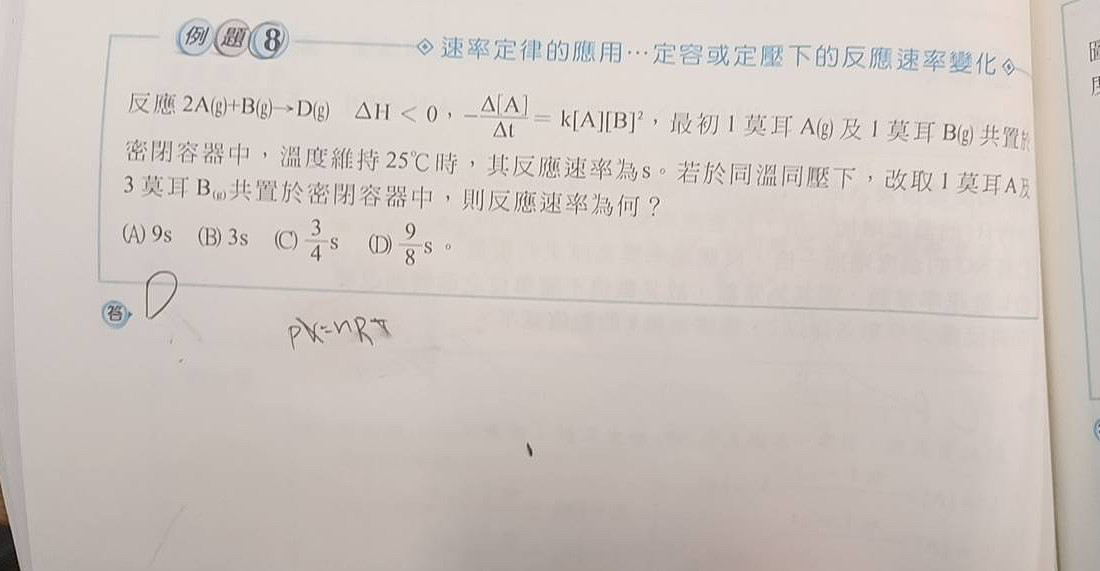 例題8
◇速率定律的應用…定容或定壓下的反應速率變化◇
反應 2A(g)+B(g)→D(g) ΔH < 0,-Δ[A]/Δt = k[A][B]²,最初1莫耳A(g)及1莫耳B(g)共置於
密閉容器中,溫度維持25℃時,其反應速率為s。若於同溫同壓下,改取1莫耳A及
3莫耳B(g)共置於密閉容器中,則反應速率為何?
(A) 9s (B) 3s (C) 3/4 s (D) 9/8 s。
答 D
PV=nRT